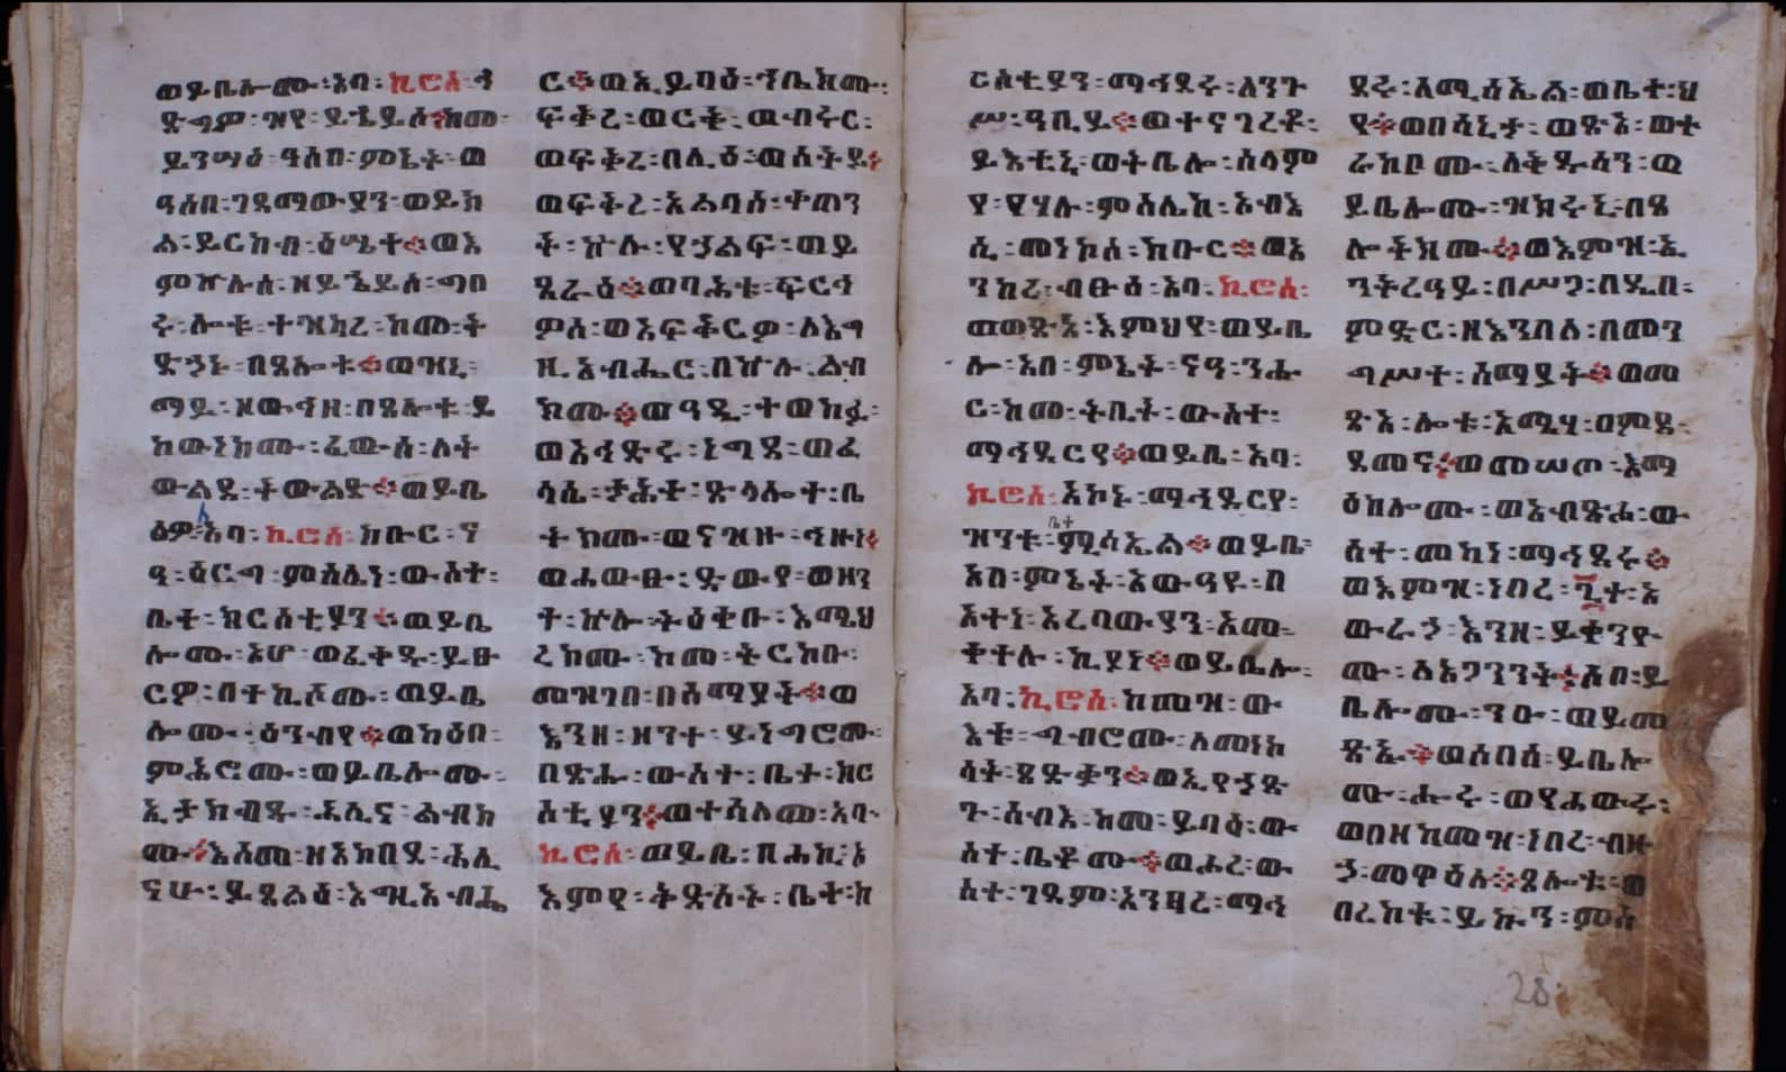 ወይቤሎሙ፡አባ፡ኪሮስ፡ኅ
ይንሣዕ፡ዓስበ፡ምኔት፡ወ
ዓስበ፡ገዳማውያን፡ወይከ
ል፡ይርከብ፡ዕሤተ፨ወእ
ምኵሉሰ፡ዘይኄይስ፡ግበ
ሩ፡ሎቱ፡ተዝካረ፡ከመ፡ት
ድኅኑ፡በጸሎቱ፨ወዝኒ፡
ማይ፡ዘውኅዘ፡በጸሎቱ፡ይ
ከውነክሙ፡ፈውሰ፡ለት
ውልደ፡ትውልድ፨ወይቤ
ዕዎ፡አባ፡ኪሮስ፡ክቡር፡ና
ዓ፡ዕርግ፡ምስሌነ፡ውስተ፡
ቤተ፡ክርስቲያን፨ወይቤ
ሎሙ፡እሆ፡ወፈቀዱ፡ይፁ
ርዎ፡በተኪሾሙ፡ወይቤ
ሎሙ፡ዕንብየ፨ወከዕበ፡
ምሕሮሙ፡ወይቤሎሙ፡
ኢታክብዱ፡ሕሊና፡ልብክ
ሙ፨እስመ፡ዘአክበደ፡ሕሊ
ናሁ፡ይጸልዕ፡እግዚአብሔ
ር፨ወኢይባዕ፡ኀቤክሙ፡
ፍቅረ፡ወርቅ፡ወብሩር፡
ወፍቅረ፡በሊዕ፡ወሰትይ፨
ወፍቅረ፡አልባስ፡ቀጠን
ት፡ኵሉ፡የኃልፍ፡ወይ
ደራዕ፨ወባሕቱ፡ፍርህ
ዎሰ፡ወአፍቅርዎ፡ለእግ
ዚአብሔር፡በኵሉ፡ልብ
ክሙ፨ወዓዲ፡ተወከፉ፡
ወአኅድሩ፡ነግደ፡ወፈ
ላሴ፡ታሕተ፡ጽላሎተ፡ቤ
ትክሙ፡ወናዝዙ፡ኅዙነ፨
ወሐውፁ፡ድውየ፡ወዘን
ተ፡ኵሎ፡ትዕቀቡ፡እሚህ
ረክሙ፡ከመ፡ትርከቡ፡
መዝገበ፡በሰማያት፨ወ
እንዘ፡ዘንተ፡ይነግሮሙ፡
በጽሑ፡ውስተ፡ቤተ፡ክር
ስቲያን፨ወተሳለሙ፡አባ
ኪሮስ፡ወይቤ፡በሐኪ፡እ
እምየ፡ቅድስት፡ቤተ፡ክ
ርስቲያን፡ማኅደሩ፡ለንጉ
ሥ፡ዓቢይ፨ወተናገረቶ፡
ይእቲኒ፡ወትቤሎ፡ሰላም
የ፡የሃሉ፡ምስሌከ፡አብእ
ሲ፡መነኮስ፡ክቡር፨ወእ
ንከረ፡ብፁዕ፡አባ፡ኪሮስ፡
ወወጽአ፡እምህየ፡ወይቤ
ሎ፡አበ፡ምኔት፡ናዓ፡ንሑ
ር፡ከመ፡ትቢት፡ውስተ፡
ማኅደርየ፨ወይቤ፡አባ፡
ኪሮስ፡አኮኑ፡ማኅደርየ፡
ዝንቱ፡ቤተ፡ሚካኤል፨ወይቤ፡
አበ፡ምኔት፡አውዓየ፡በ
እተነ፡አረባውያን፡አመ፡
ቀተሉ፡ኪያነ፨ወይቤሎ፡
አባ፡ኪሮስ፡ከመዝ፡ው
እቱ፡ግብሮሙ፡ለመነክ
ሳት፡ጸድቃን፨ወኢየኃድ
ጉ፡ሰብእ፡ከመ፡ይባዕ፡ው
ስተ፡ቤቶሙ፨ወሐረ፡ው
ስተ፡ገዳም፡አንጻረ፡ማኅ
ደሩ፡ለሚካኤል፡ወቤተ፡ህ
የ፨ወበሳኒታ፡ወጽአ፡ወተ
ራከቦሙ፡ለቅዱሳን፡ወ
ይቤሎሙ፡ዝክሩኒ፡በጸ
ሎትክሙ፨ወእምዝ፡ኢ
ንትረዓይ፡በሥጋ፡በዲበ፡
ምድር፡ዘእንበለ፡በመን
ግሥተ፡ሰማያት፨ወመ
ጽአ፡ሎቱ፡እሚሃ፡ዐምደ፡
ደመና፨ወመሠጦ፡እማ
ዕከሎሙ፡ወአብጽሐ፡ው
ስተ፡መካነ፡ማኅደሩ፨
ወእምዝ፡ነበረ፡፪ተ፡አ
ውራኃ፡እንዘ፡ይቀንዮ
ሙ፡ለአጋንንት፨ለበ፡ይ
ቤሎሙ፡ንዑ፡ወይመ
ጽኡ፨ወሰበሰ፡ይቤሎ
ሙ፡ሑሩ፡ወየሐውሩ፡
ወበዘከመዝ፡ነበረ፡ብዙ
ኃ፡መዋዕለ፨ጸሎቱ፡ወ
በረከቱ፡ይኩን፡ምስ
28